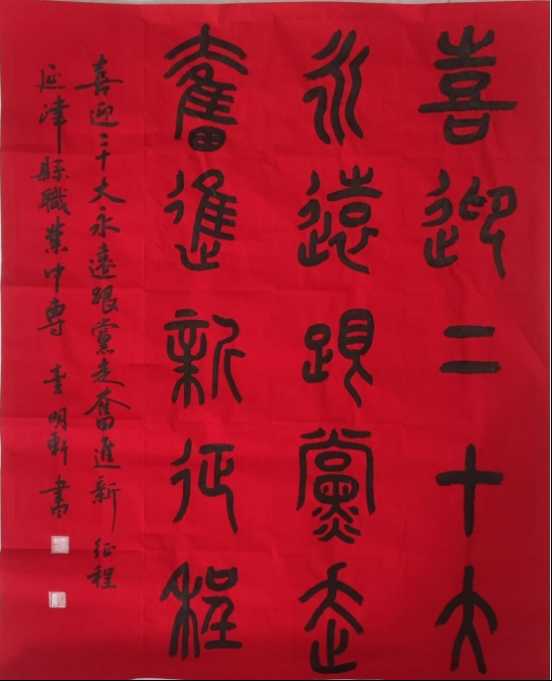 喜迎二十大
永遠跟黨走
奮進新征程
喜迎二十大永遠跟黨走奮進新征程
延津縣職業中專 明軒書